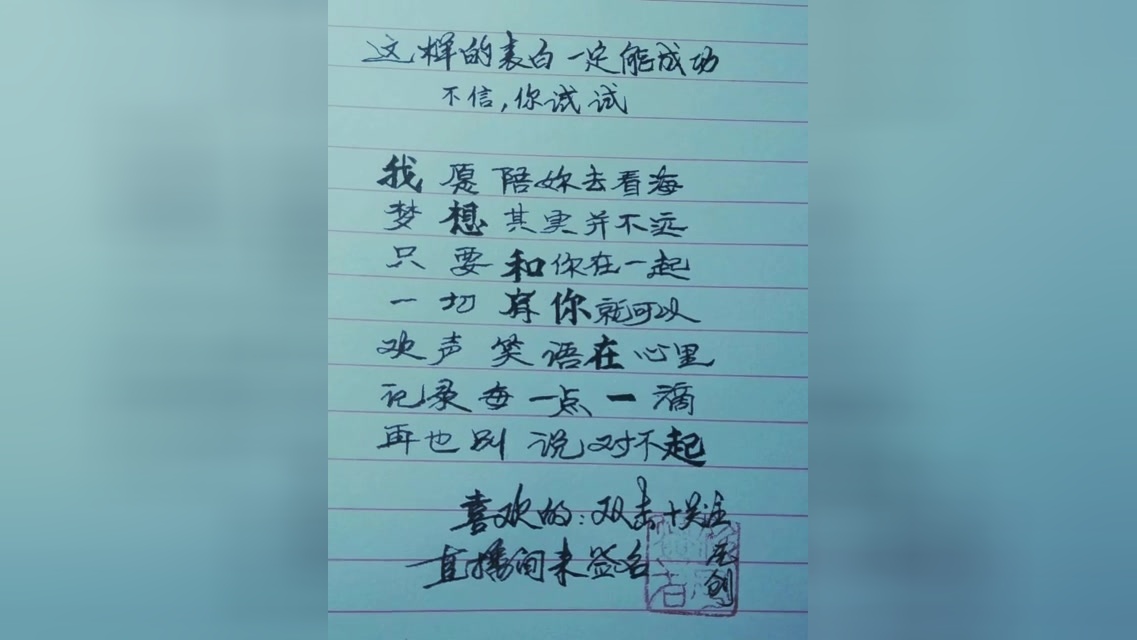 这样的表白一定能成功
不信,你试试
我愿陪你去看海
梦想其实并不远
只要和你在一起
一切有你就可以
欢声笑语在心里
记录每一点一滴
再也别说对不起
喜欢的:双击+关注
直播间来签名
原创